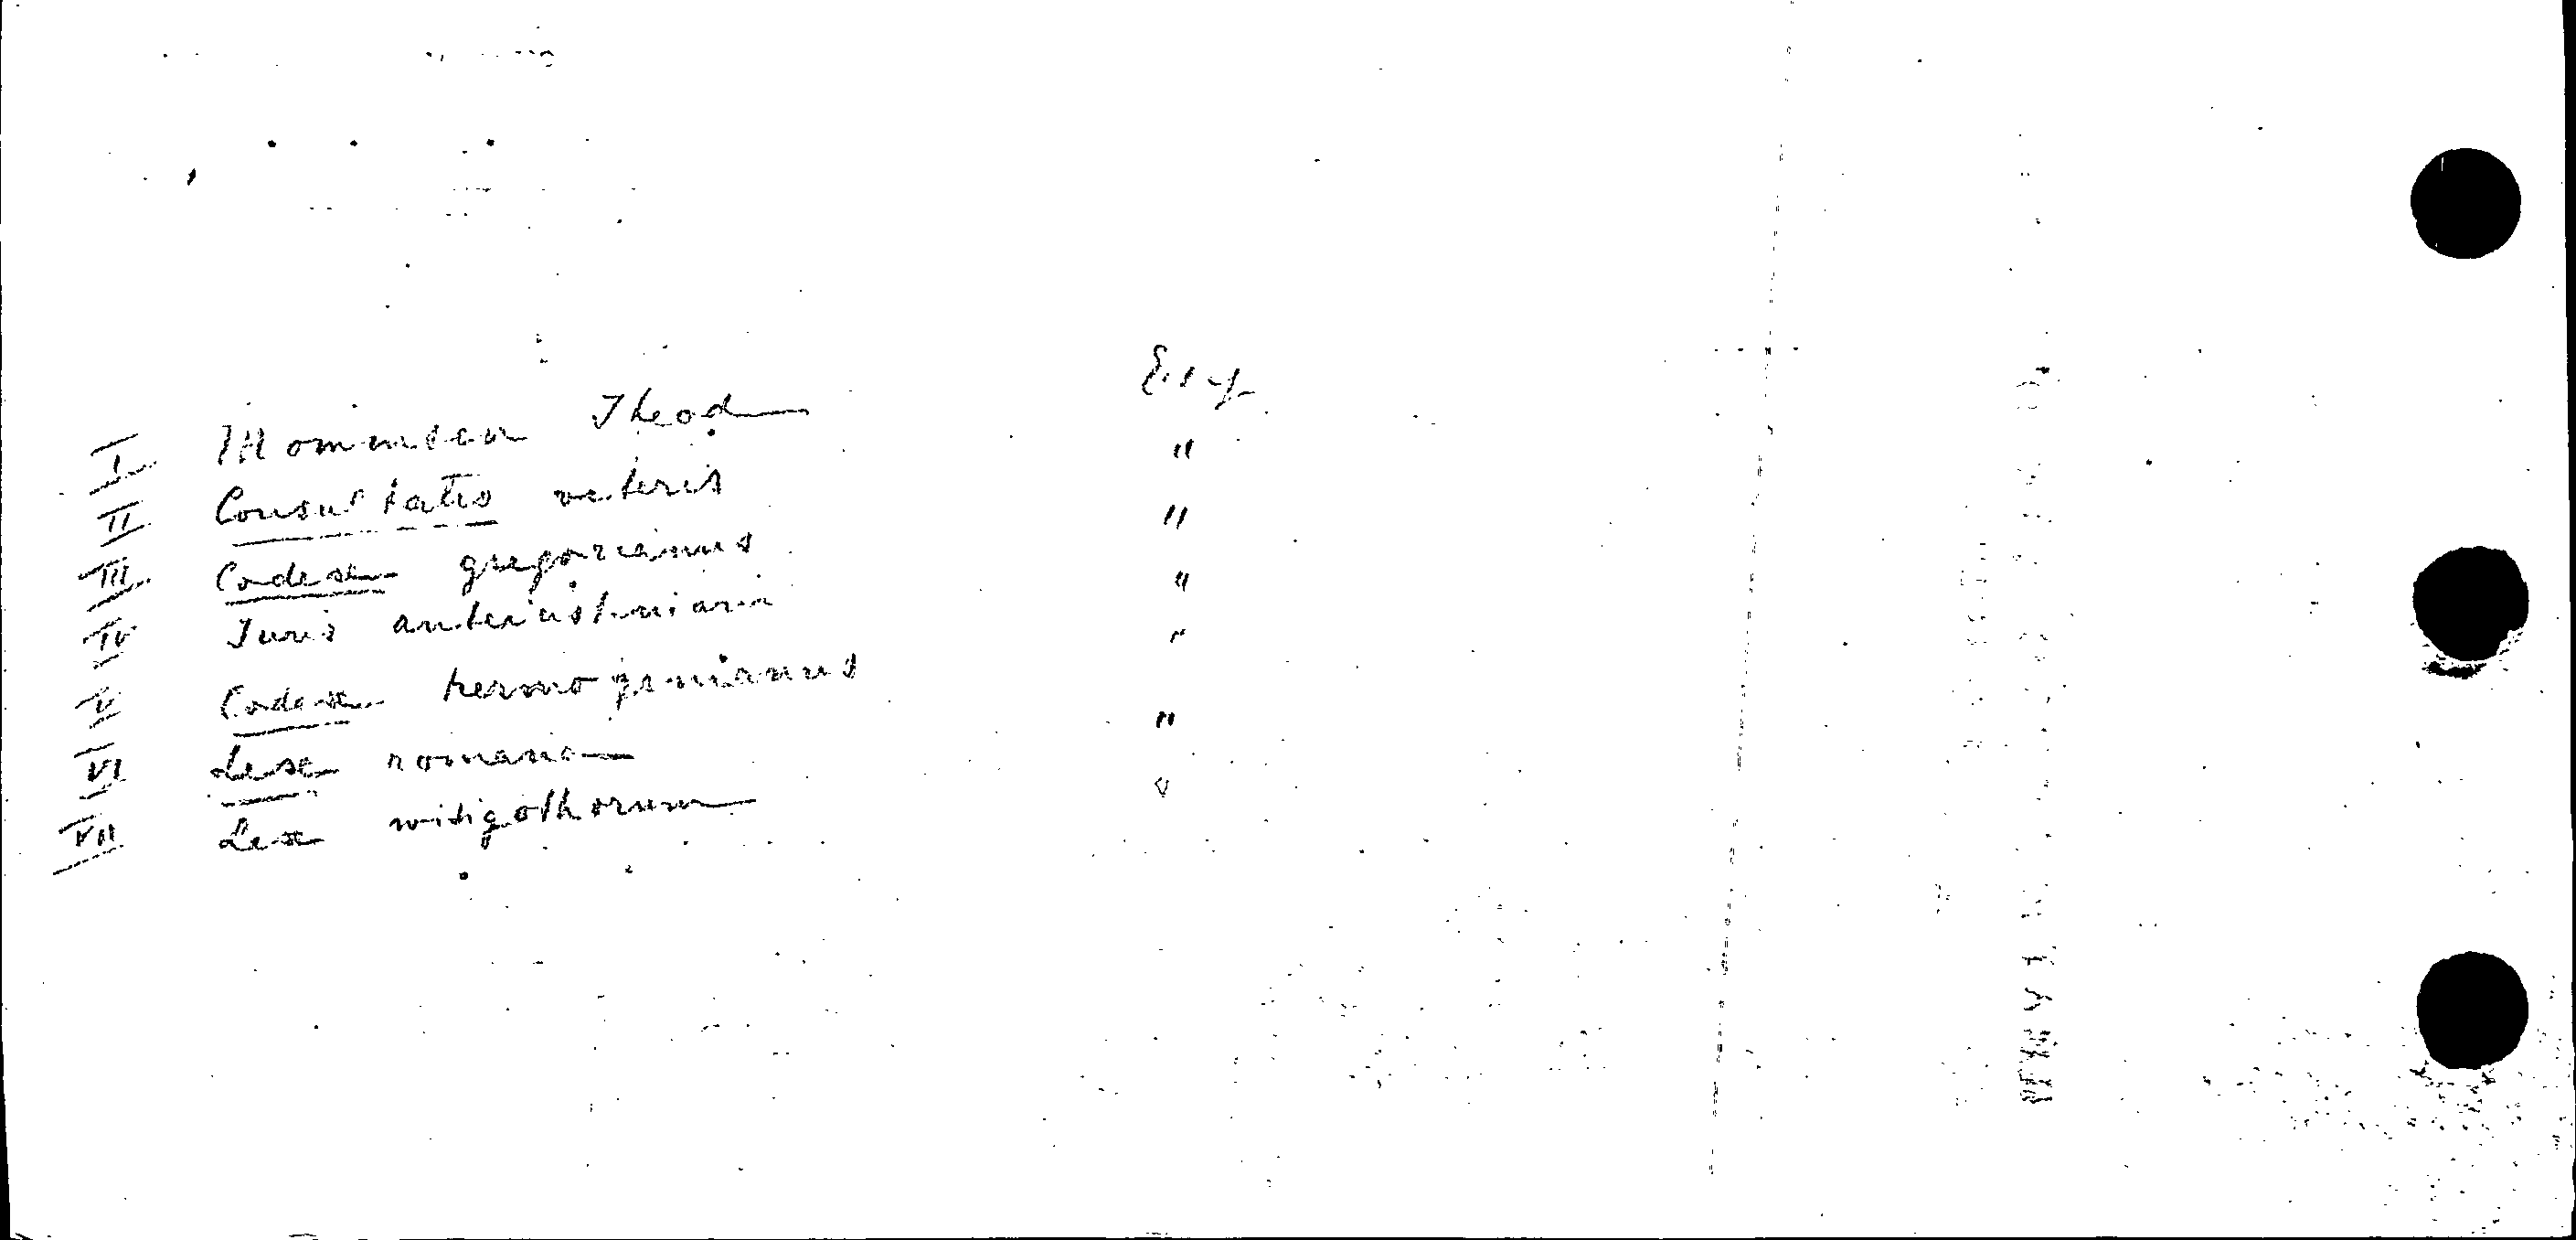 I Mommsen Theod
II Consultatio veteris "
III Codex gregorianus "
IV Juris anteiustiniani "
V Codex hermogenianus "
VI Lex romana "
VII Lex wisigothorum "